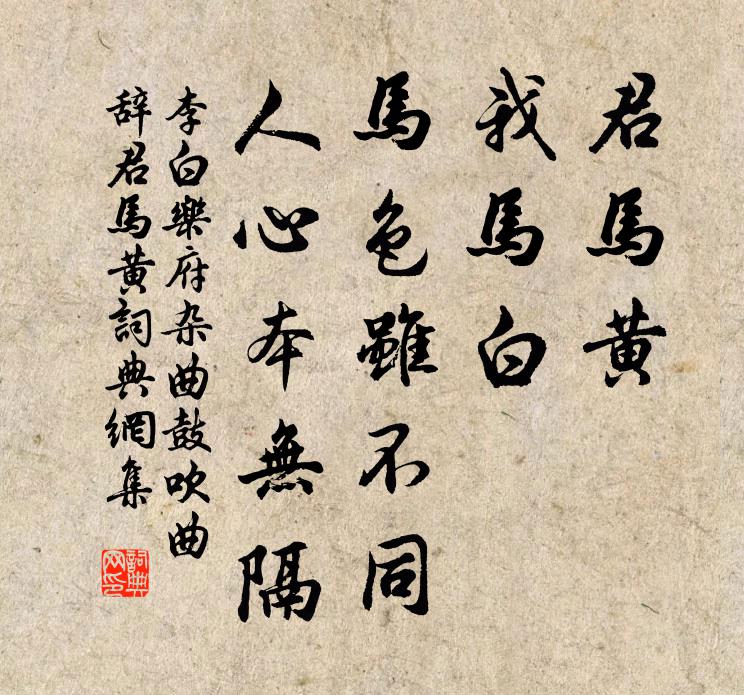 君馬黄
我馬白
馬色雖不同
人心本無隔
李白樂府杂曲鼓吹曲
辞君馬黄詞典網集
詞典网印